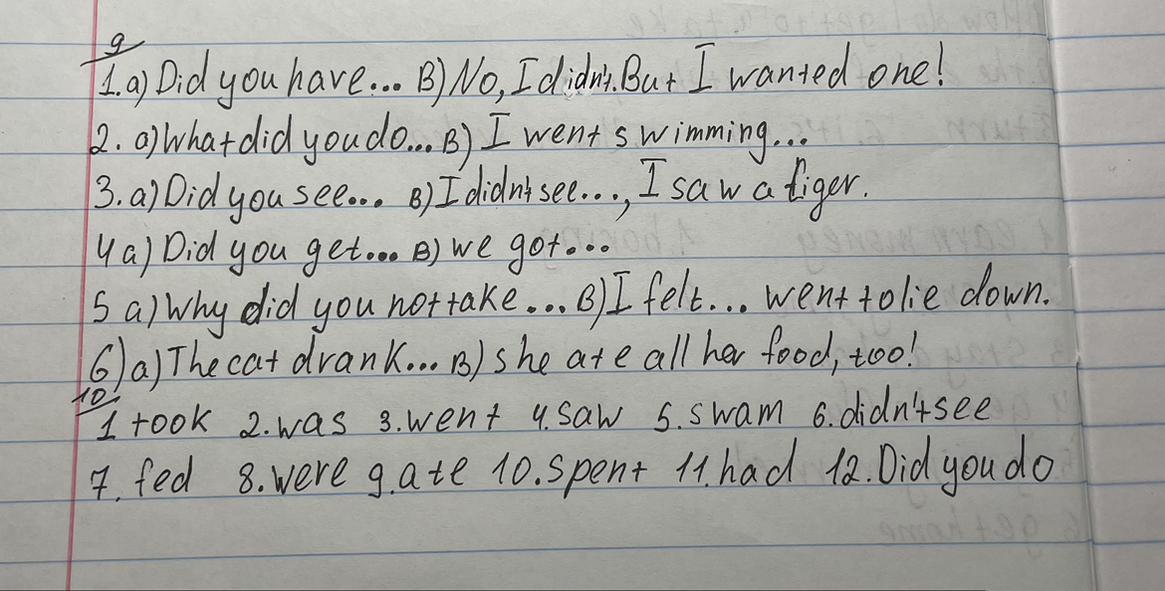 9
1. a) Did you have... B) No, I didn't. But I wanted one!
2. a) What did you do... B) I went swimming...
3. a) Did you see... B) I didn't see..., I saw a tiger.
4 a) Did you get... B) we got...
5 a) Why did you not take... B) I felt... went to lie down.
6) a) The cat drank... B) she ate all her food, too!
10
1 took 2. was 3. went 4. saw 5. swam 6. didn't see
7. fed 8. were 9. ate 10. spent 11. had 12. Did you do